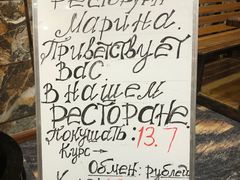 Ресторан
Марина.
Приветствует
Вас
В нашем
Ресторане.
Покушать: 13.7
Курс →
Обмен: рублей